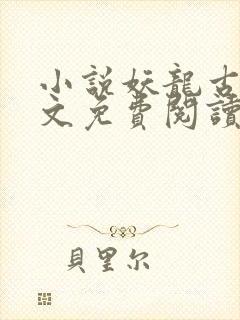 小説妖龍古
文免費閱讀
貝里尔